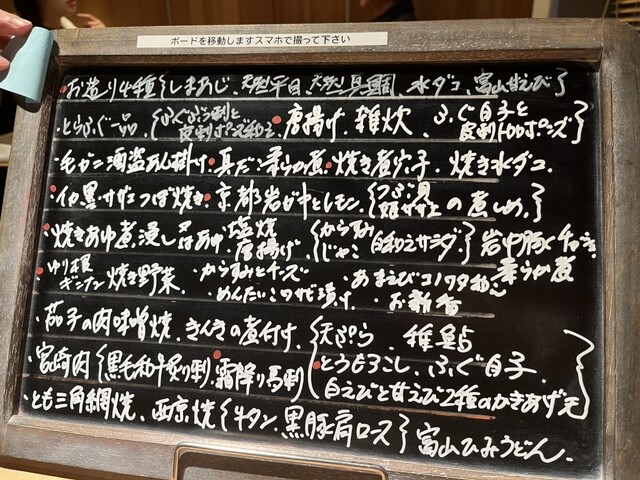 ボードを移動しますスマホで撮って下さい
・お造り4種{しまあじ、天然平目、天然真鯛、水ダコ、富山甘えび}
・とらふぐ一品{ふぐぶつ刺と皮刺ポン酢和え・唐揚げ、雑炊、ふぐ白子と皮刺トロロポンズ}
・毛ガニ酒盗あん掛け・真だこ柔らか煮・焼き煮穴子・焼き水ダコ
・イカ黒・サザエつぼ焼き・京都岩がキとレモン、{つぶ貝 姫サザエ の煮しめ}
・焼きあゆ煮浸し 塩焼 唐揚げ、{からすみ じゃこ 白和えサラダ}岩中豚 柔らか煮
・ゆり根 ギンナン 焼き野菜・からすみとチーズ・あまえびコノワタ和え
・めんたいこのわさ漬け・お新香
・茄子の肉味噌焼、きんきの煮付け、{天ぷら、稚鮎
・宮崎肉{黒毛和牛炙り刺・霜降り馬刺・とうもろこし、ふぐ白子、
白えびと甘えび2種のかきあげ天}
・とも三角網焼、西京焼{牛タン、黒豚肩ロース}富山ひみうどん、